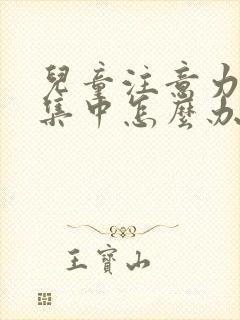 兒童注意力
集中怎麼办
王寶山